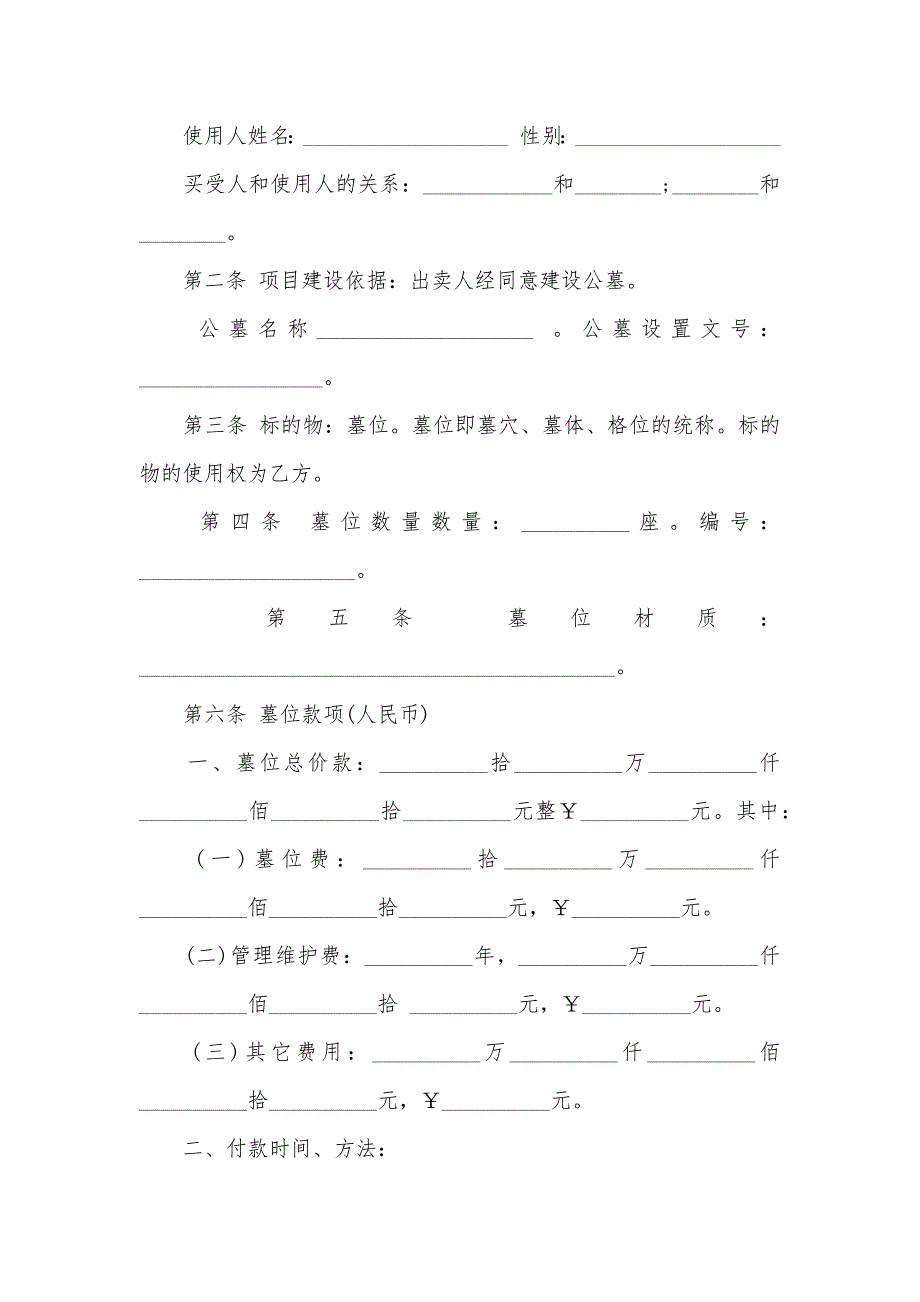 使用人姓名:___________________ 性别:___________________
买受人和使用人的关系:____________和________;________和
________。
第二条 项目建设依据:出卖人经同意建设公墓。
公墓名称____________________ 。公墓设置文号:
_________________。
第三条 标的物:墓位。墓位即墓穴、墓体、格位的统称。标的
物的使用权为乙方。
第四条 墓位数量数量:__________座。编号:
____________________。
第五条 墓位材质:
____________________________________________。
第六条 墓位款项(人民币)
一、墓位总价款:__________拾__________万__________仟
__________佰__________拾__________元整￥__________元。其中:
(一)墓位费:__________拾__________万__________仟
__________佰__________拾__________元,￥__________元。
(二)管理维护费:__________年,__________万__________仟
__________佰__________拾 __________元,￥__________元。
(三)其它费用:__________万__________仟__________佰
__________拾__________元,￥__________元。
二、付款时间、方法: